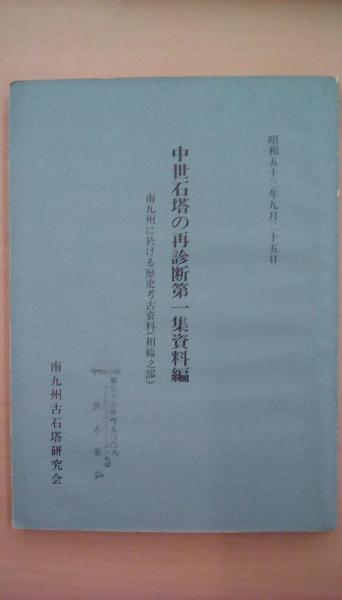 昭和五十三年九月二十五日
中世石塔の再診断第一集資料編
南九州に於ける歴史考古資料(相輪之部)
南九州古石塔研究会